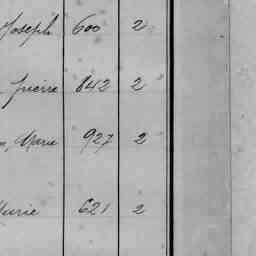 Joseph 600 2
Pierre 842 2
, Marie 927 2
Marie 621 2